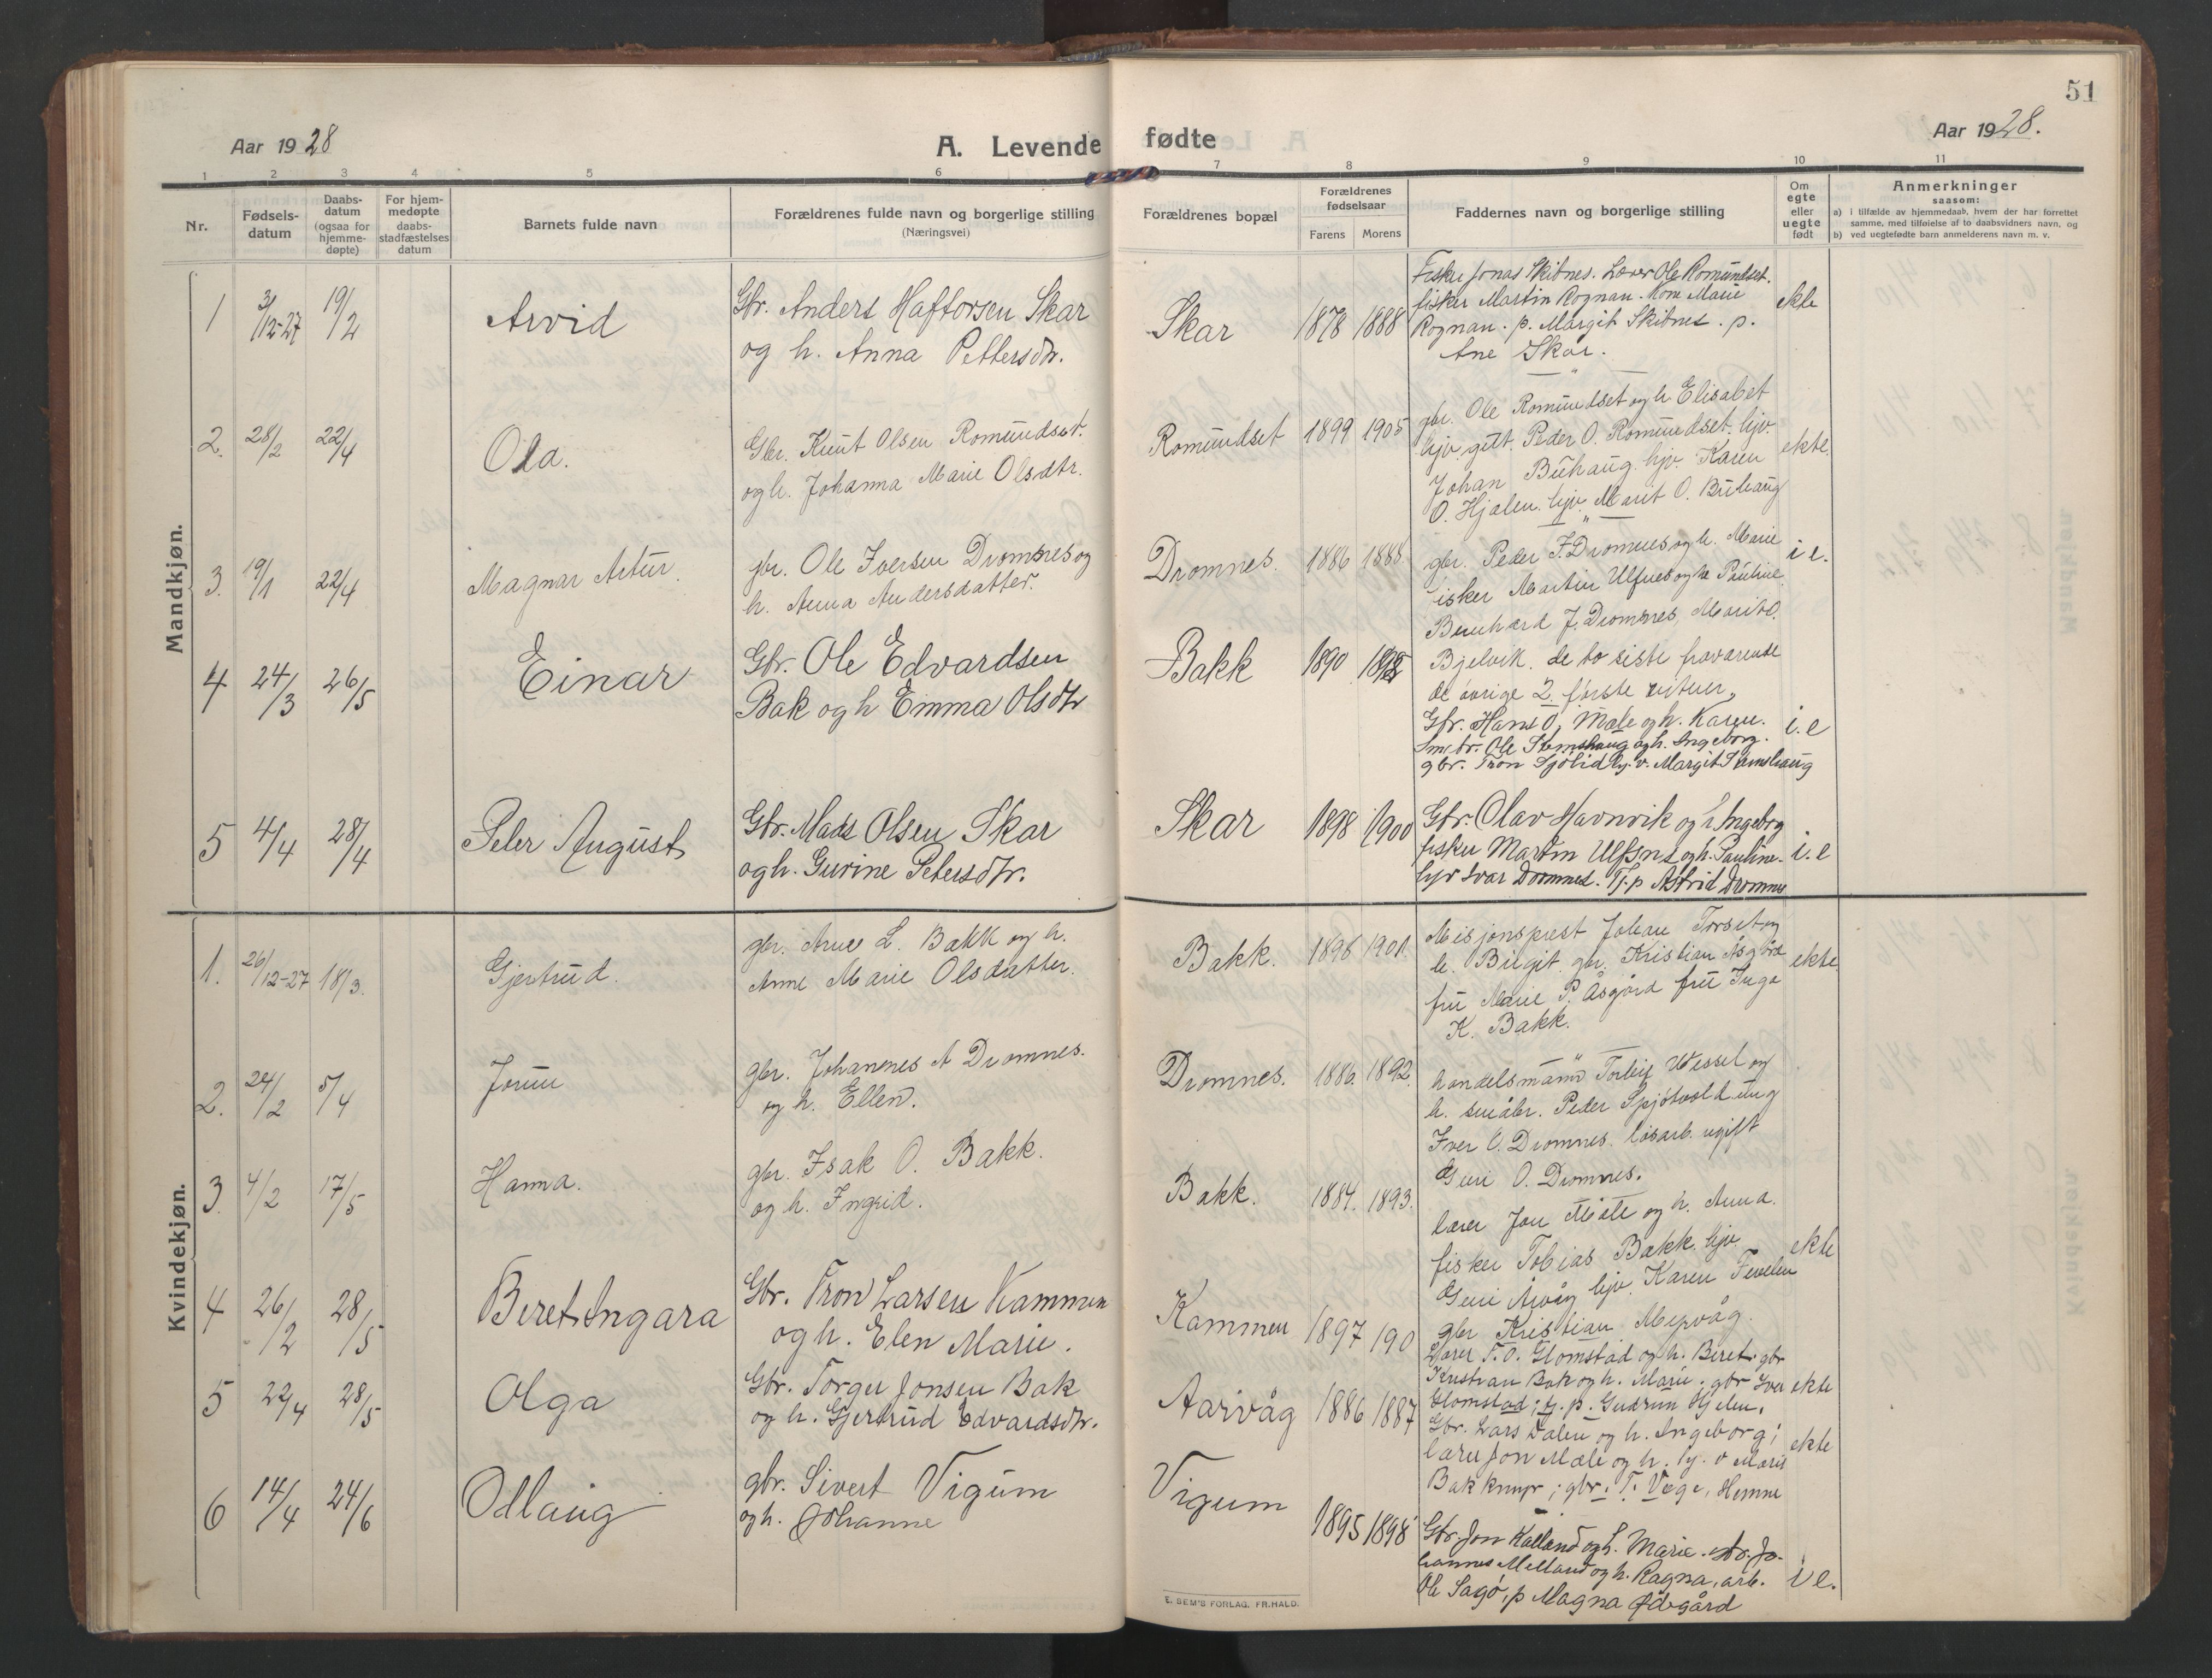 51
Aar 1928
A. Levende fødte
Aar 1928.
1 2 3 4 5 6 7 8 9 10 11
Nr.
Fødselsdatum
Daabsdatum (ogsaa for hjemmedøpte)
For hjemmedøpte daabsstadfæstelses datum
Barnets fulde navn
Forældrenes fulde navn og borgerlige stilling
(Næringsvei)
Forældrenes bopæl
Forældrenes fødselsaar
Farens Morens
Faddernes navn og borgerlige stilling
Om egte eller uegte født
Anmerkninger
saasom:
a) i tilfælde av hjemmedaab, hvem der har forrettet
samme, med tilføielse af to daabsvidners navn, og
b) ved uegtefødte barn anmelderens navn m. v.
Mandkjøn.
1 3/12-27 19/2 Arvid
Gbr. Anders Haftorsen Skar
og h. Anna Pettersdtr.
Skar 1878 1888
Fisker Jonas Skibnes. Lærer Ole Romundset.
fisker Martin Rognan. Kone Marie
Rognan. p. Margit Skibnes. p.
Ane Skar.
ekte
2. 28/2 22/4 Ola.
Gbr. Knut Olsen Romundset.
og h. Johanna Marie Olsdtr.
Romundset 1899 1905
gbr. Ole Romundset og h Elisabet
hjv. gitt. Peder O. Romundset. hjv.
Johan Buhaug. hjv. Karen
O. Hjalen. hjv. Marit O. Buhaug
ekte.
3. 19/1 22/4 Magnar Artur.
gbr. Ole Iversen Dromnes og
h. Anna Andersdatter.
Dromnes. 1886 1888.
gbr. Peder J. Dromnes og h. Marie
isker Martin Ulfsnes og h. Pauline.
Bernhard J. Dromnes, Marit O.
Bjelvik. de to siste fraværende
de øvrige 2 første
i e.
4 24/3 26/5 Einar
Gbr. Ole Edvardsen
Bak og h Emma Olsdtr
Bakk 1890
Gbr. Hans O. Mæle og h. Karen.
Smbr. Ole Stemshaug og h. Ingeborg.
gbr. Tron Sjølid hj. v. Margit Stemshaug
i. e
5 4/4 28/4 Peter August
Gbr. Mads Olsen Skar
og h. Gurine Petersdtr.
Skar 1898 1900
Gbr. Olav Havnvik og h Ingeborg
fisker Martin Ulfsnes og h. Pauline.
hjv Ivar Dromnes. Tj. p Astrid Dromnes
i. e
Kvindekjøn.
1. 26/12-27 18/3. Gjertrud.
gbr. Arne L. Bakk og h.
Anne Marie Olsdatter.
Bakk. 1896 1901.
Misjonsprest Johan Torset og
h. Birgit. gbr. Kristian Åsgård
fru Marie P. Åsgård fru Inga
K. Bakk.
ekte.
2. 24/2 5/4 Jorun
gbr. Johannes A Dromnes.
og h. Ellen.
Dromnes. 1886. 1892.
handelsmann Torleif Wessel og
h. småbr. Peder Spjøtvold ung
Iver O. Dromnes. løsarb. ugift
Guri O. Dromnes.
3. 4/2 17/5 Hanna.
gbr. Isak O. Bakk.
og h. Ingrid.
Bakk. 1884. 1893.
lærer Jon Mæle og h. Anna.
fisker Tobias Bakk. hjv.
Guri Årvåg hjv. Karen
gbr Kristian
ekte
4 26/2 28/5 Beret Ingara
Gbr. Tron Larsen Kammen
og h. Elen Marie.
Kammen 1897 190
Lærer T. O. Glomstad og h. Beret. gbr
Kristian Bak og h. Marie. gbr Iver
Glomstad; tj. p. Gudrun Hjelen.
ekte
5 22/4 28/5 Olga
Gbr. Torger Jonsen Bak
og h. Gjertrud Edvardsdtr.
Aarvåg 1886 1887
Gbr. Lars Dalen og h. Ingeborg;
lærer Jon Mæle og h. Tj. v Marit
Bakkmyr; gbr. T. Vage, Hemne
ekte
6 14/4 24/6 Odlaug
gbr. Sivert Vigum
og h. Johanne
Vigum 1895 1898
Gbr. Jon Kalland og h. Marie. gbr. Jo-
hannes Melland og h. Ragna, arb.
Ole Sagø, p Magna Ødegård
i e.
E. SEM'S FORLAG. FR.HALD.